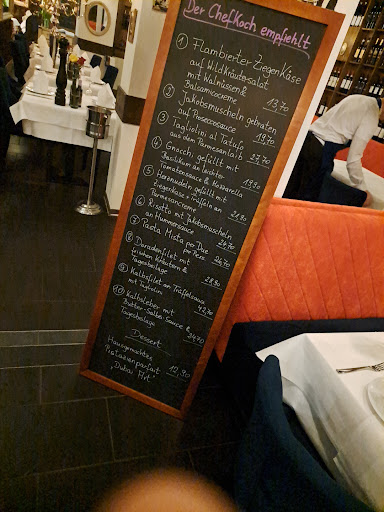 Der Chefkoch empfiehlt
1 Flambierter Ziegenkäse
auf Wildkräutersalat
mit Walnüssen &
Balsamicocreme 13,70
2 Jakobsmuscheln gebraten
auf Proseccosauce 19,70
3 Tagliolini al Tartufo
aus dem Parmesanlaib 27,70
4 Gnocchi gefüllt mit
Basilikum an leichter
Tomatensauce & Mozzarella 19,90
5 gefüllt mit
Ziegenkäse & Trüffeln an
Parmesancreme 21,90
6 Risotto mit Jakobsmuscheln
an Hummersauce 24,70
7 Pasta Mista per Due
per Pers. 26,70
8 Doradenfilet mit
frischen Kräutern &
Tagesbeilage 28,90
9 Kalbsfilet an Trüffelsauce
mit 42,70
10 Kalbsleber mit
Butter-Salbei-Sauce &
Tagesbeilage 24,70
Dessert
Hausgemachtes
Pistazienparfait 12,90
"Dubai